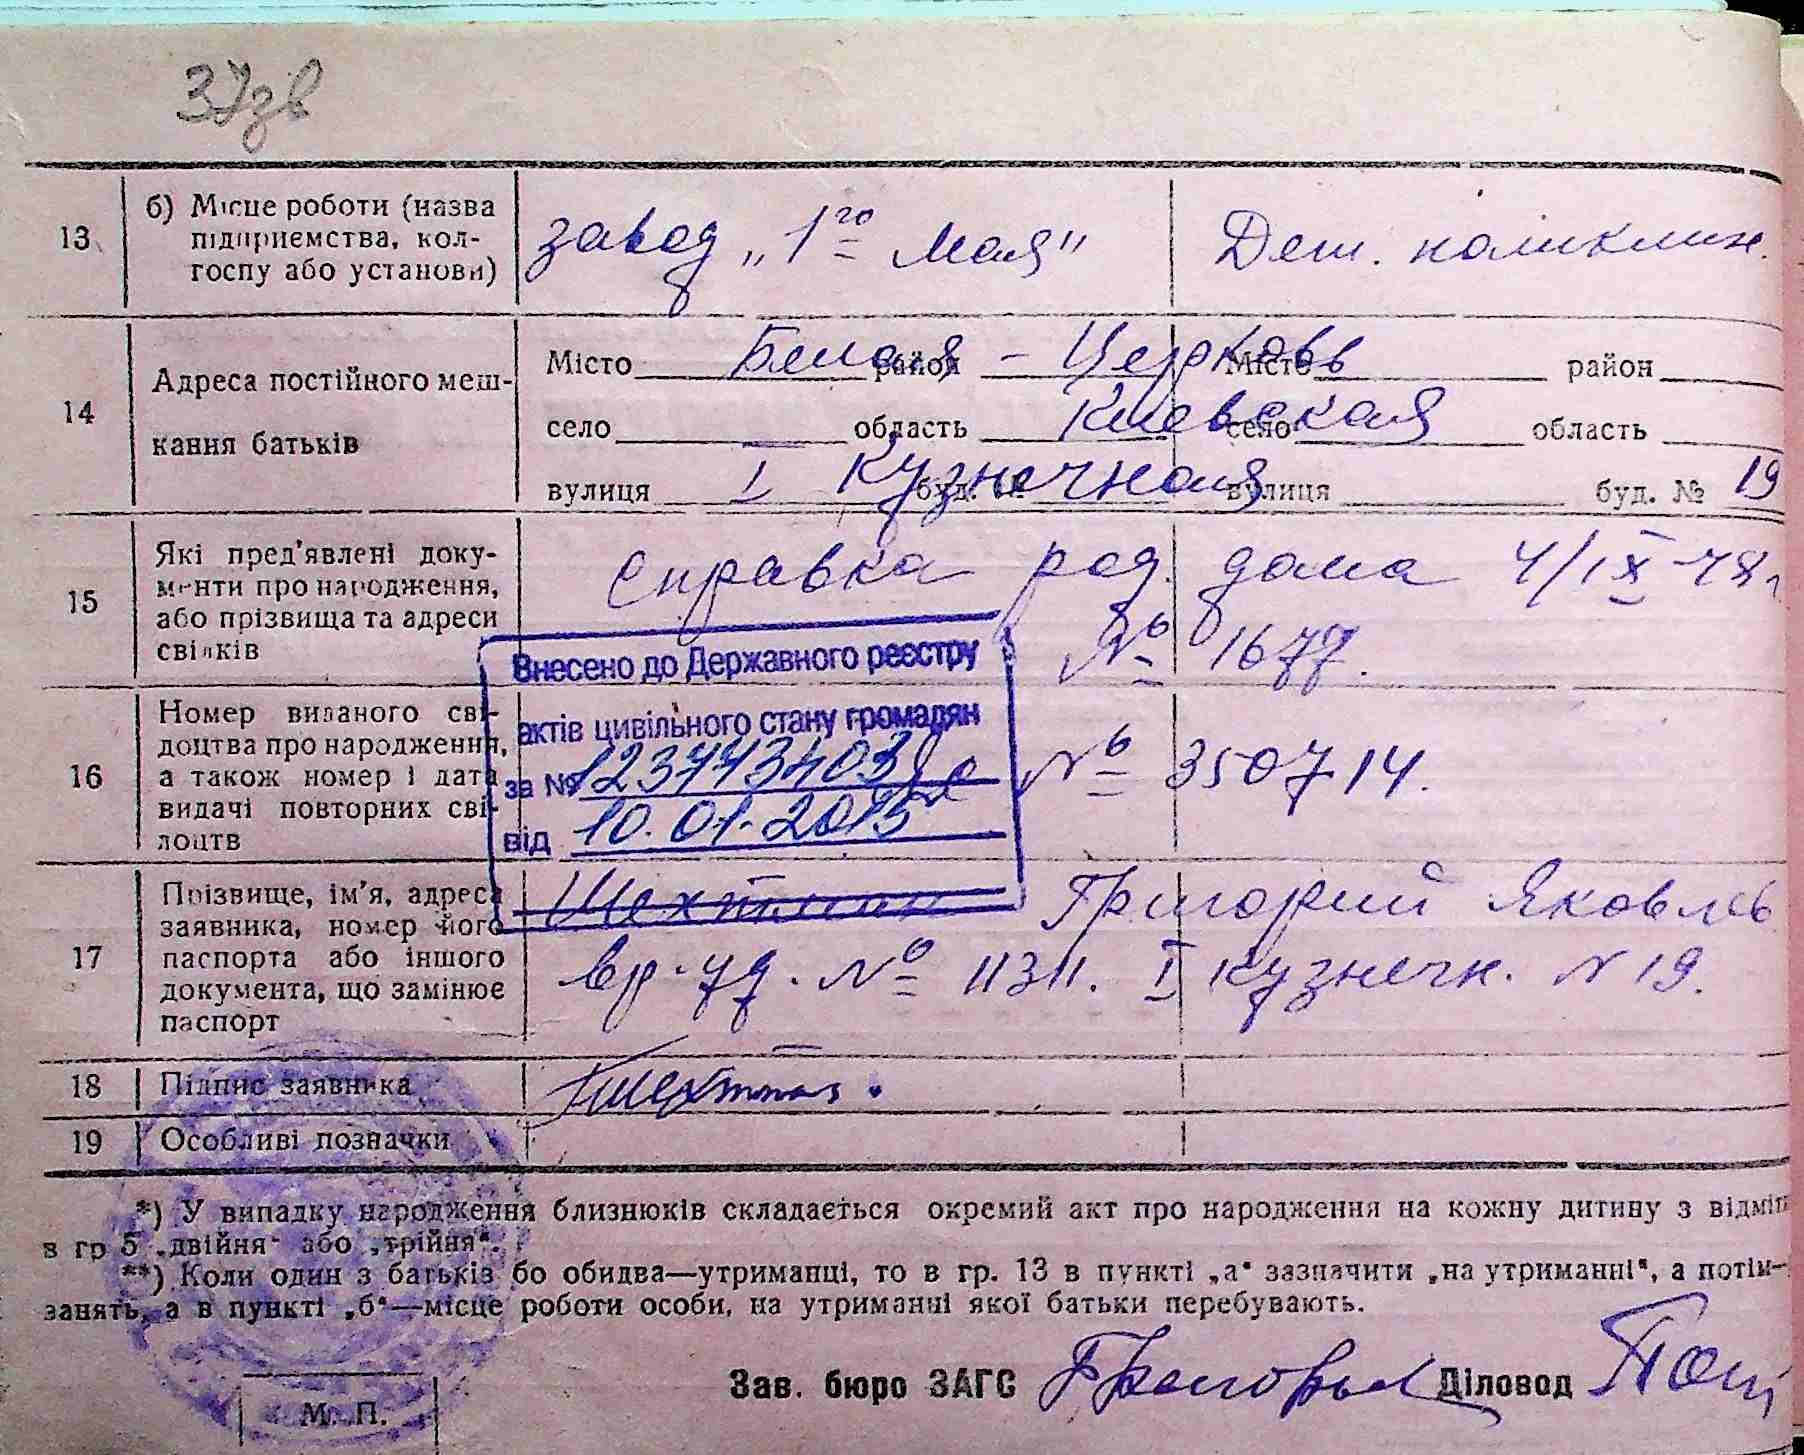 37зв
13 б) Місце роботи (назва підприємства, кол-
госпу або установи)
завод „1го Мая" Дет. поликлин.
14 Адреса постійного меш-
кання батьків
Місто Белая - район Церковь Місто район
село область Киевская село область
вулиця I Кузнечная буд. № вулиця буд. № 19
15 Які пред'явлені доку-
менти про народження,
або прізвища та адреси
свідків
Справка род. дома 4/IX-48г
№ 1677.
Внесено до Державного реєстру
актів цивільного стану громадян
за №
від 10.01.2015
16 Номер виданого сві-
доцтва про народження,
а також номер і дата
видачі повторних сві-
доцтв
№ 350714.
17 Прізвище, ім'я, адреса
заявника, номер його
паспорта або іншого
документа, що замінює
паспорт
Шехтман Григорий Яковлев
вр. уд. № 11311. I Кузнечн. N 19.
18 Підпис заявника
19 Особливі позначки
*) У випадку народження близнюків складається окремий акт про народження на кожну дитину з відміт
в гр 5 „двійня" або „трійня".
**) Коли один з батьків бо обидва—утриманці, то в гр. 13 в пункті „а" зазначити „на утриманні", а потім—
занять, а в пункті „б"—місце роботи особи, на утриманні якої батьки перебувають.
Зав. бюро ЗАГС Діловод
М. П.